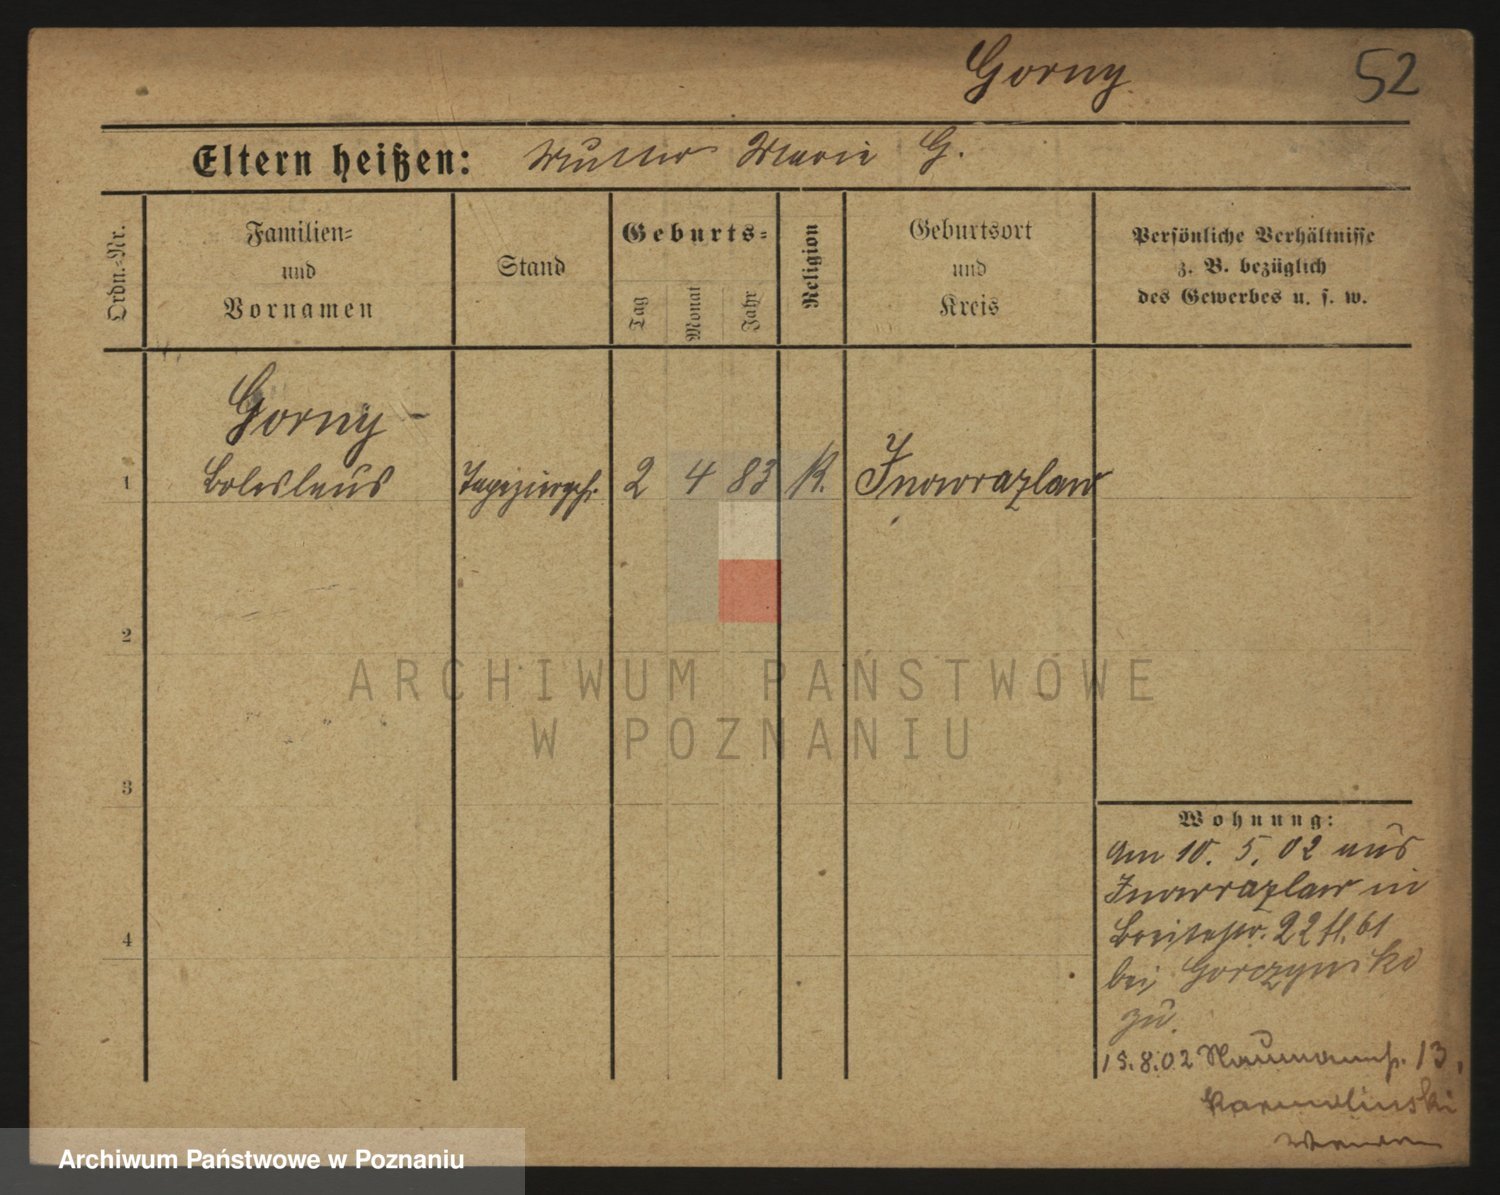 Gorny
52
Eltern heißen: Mutter Marie G.
Ordn.-Nr.
Familien-
und
Vornamen
Stand
Geburts-
Tag
Monat
Jahr
Religion
Geburtsort
und
Kreis
Persönliche Verhältnisse
z. B. bezüglich
des Gewerbes u. s. w.
Gorny -
1 Boleslaus Tapeziergeh. 2 4 83 K. Inowrazlaw
2
3
4
Wohnung:
Am 10. 5. 02 aus
Inowrazlaw in
Breitestr. 22 61
bei Gorczynski
zu.
15.8.02 Naumannstr. 13.
ARCHIWUM PAŃSTWOWE
W POZNANIU
Archiwum Państwowe w Poznaniu